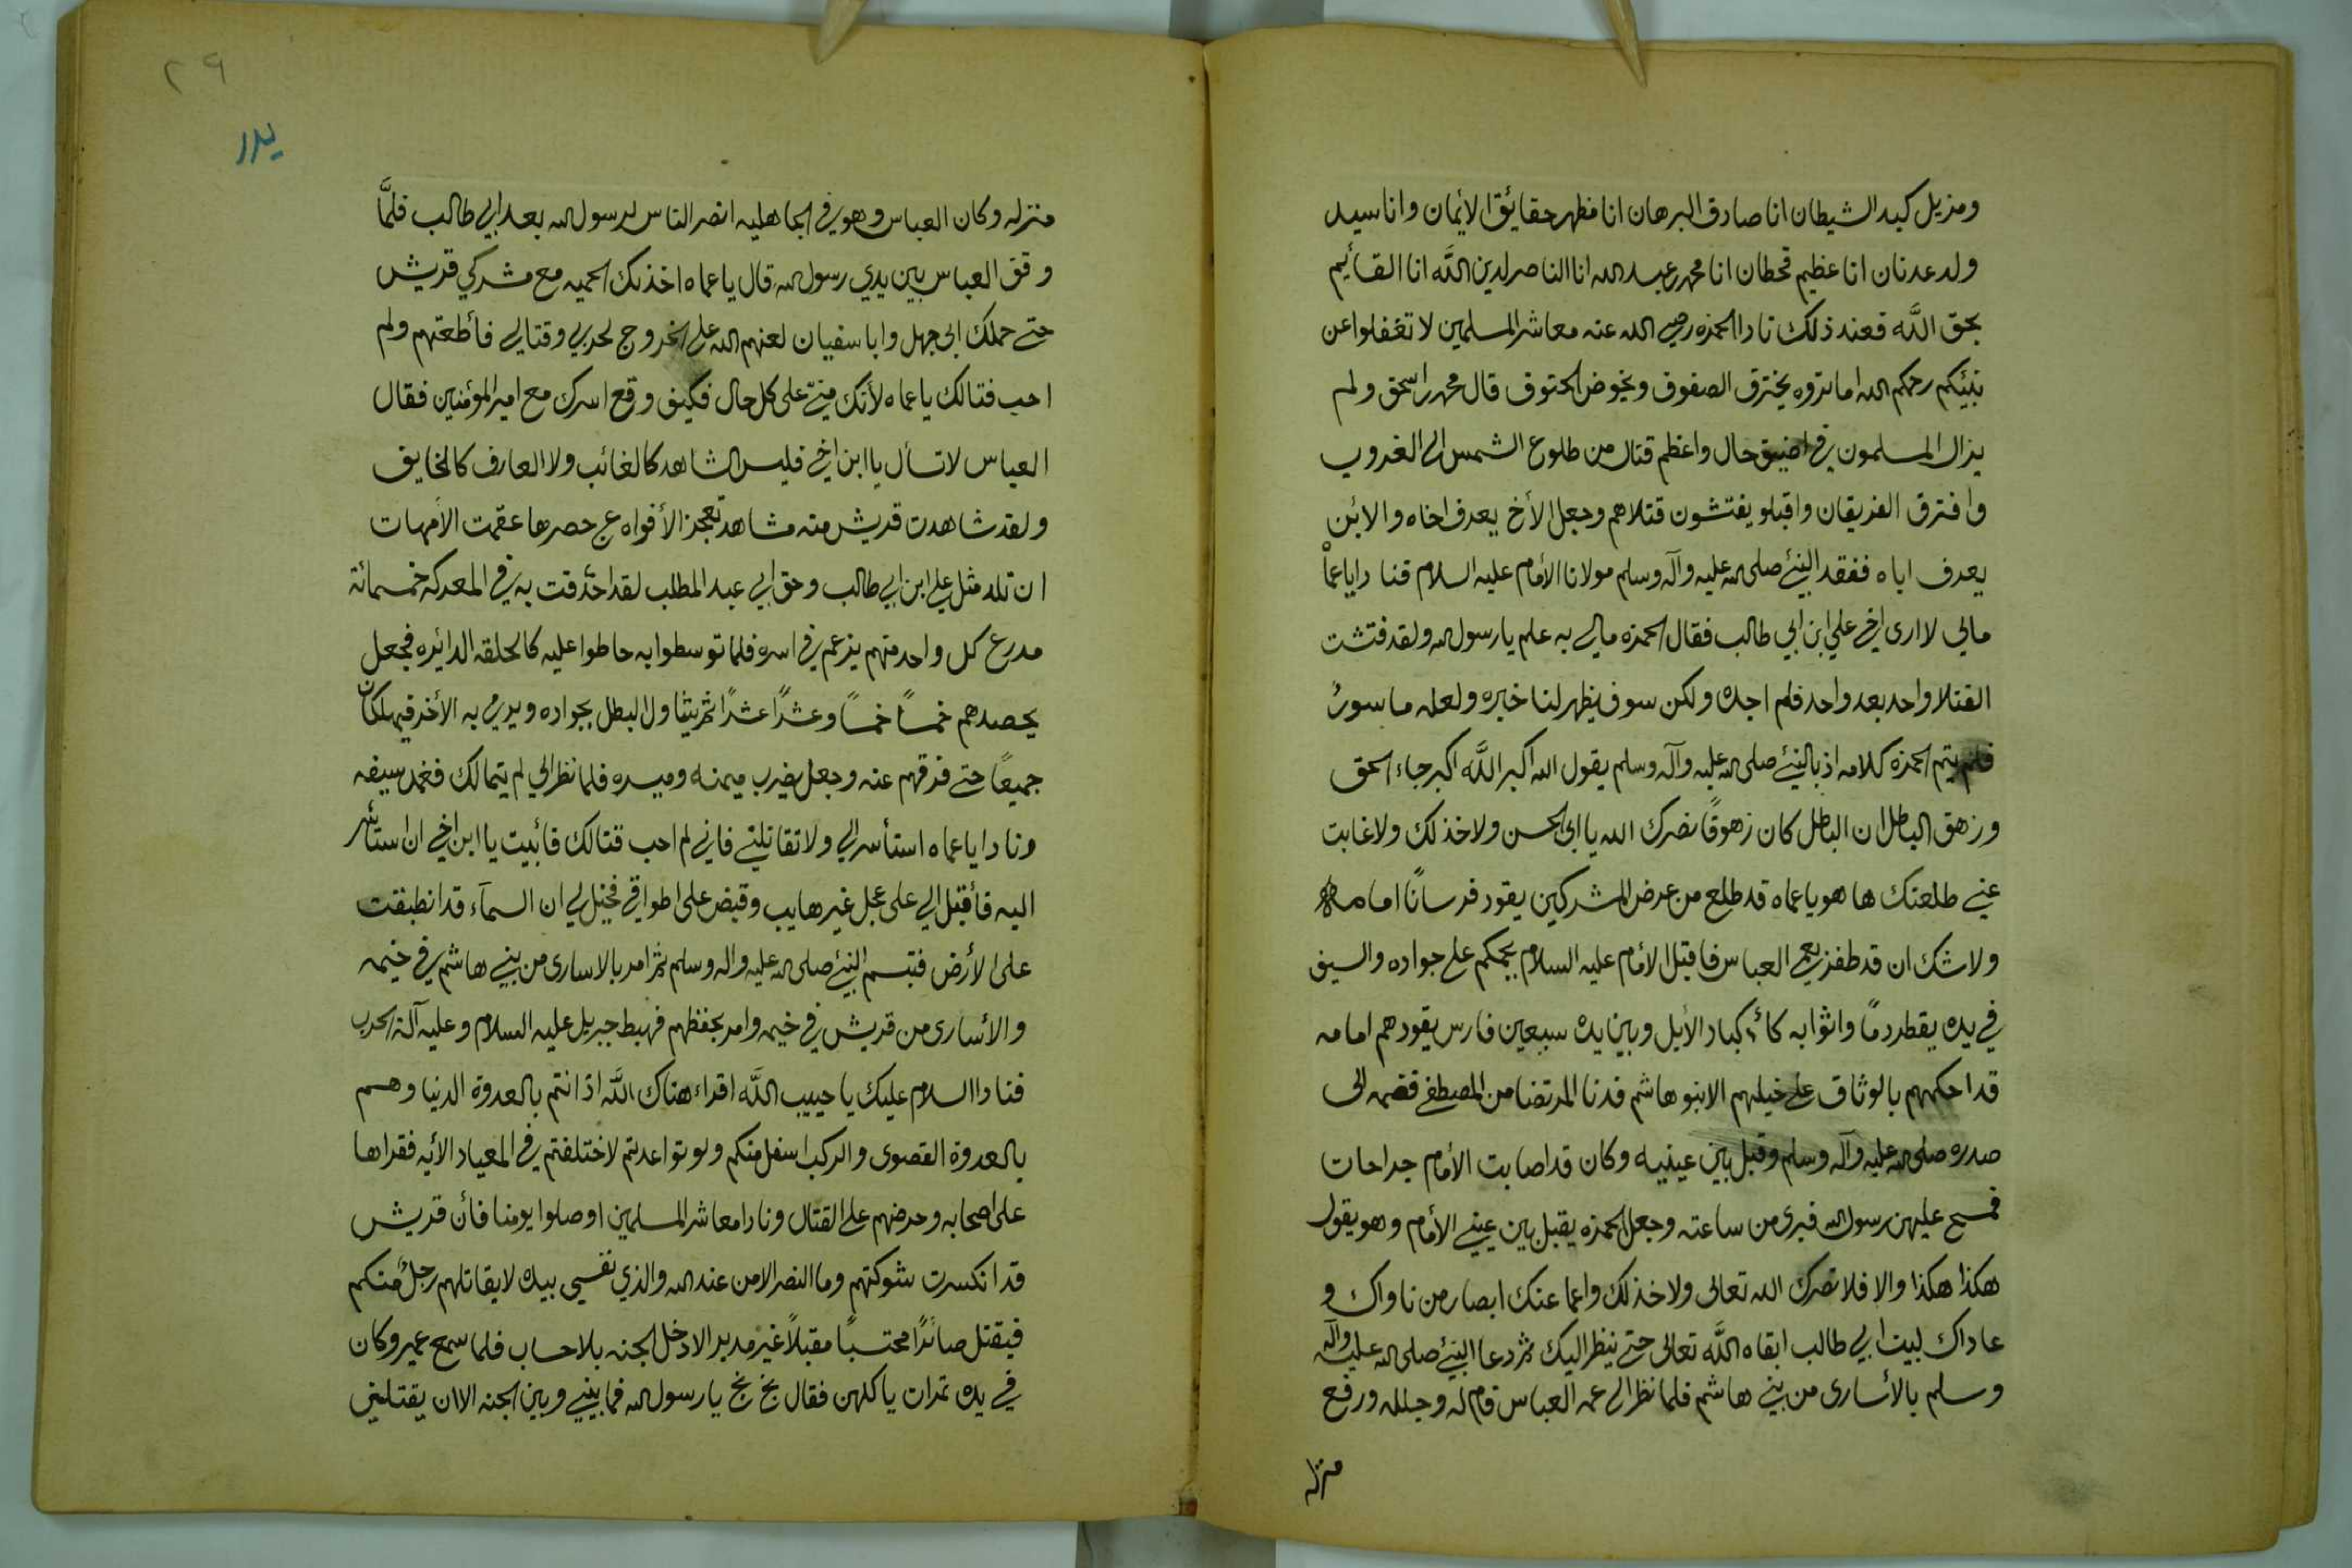 ومزيل كيد الشيطان انا صادق البرهان انا مظهر حقائق الأيمان وانا سيد
ولد عدنان انا عظيم قحطان انا محمد بن عبد الله انا الناصر لدين الله انا القأيم
بحق الله فعند ذلك نادا الحمزه رضي الله عنه معاشر المسلمين لا تغفلوا عن
نبيئكم رحمكم الله اما تروه يخترق الصفوف ويخوض الحتوف قال محمد ابن اسحق ولم
يزال المسلمون في اضيق حال واعظم قتال من طلوع الشمس الى الغروب
وافترق الفريقان واقبلو يفتشون قتلاهم وجعل الأخ يعرف اخاه والابن
يعرف اباه ففقد النبيء صلى الله عليه وآله وسلم مولانا الأمام عليه السلام فنادا يا عماه
مالي لا ارى اخي علي ابن ابي طالب فقال الحمزه مالي به علم يا رسول الله ولقد فتشت
القتلا واحد بعد واحد فلم اجده ولكن سوف يظهر لنا خبره ولعله ماسورٌ
فلم يتم الحمزه كلامه اذ بالنبيء صلى الله عليه وآله وسلم يقول الله اكبر الله اكبر جاء الحق
وزهق الباطل ان الباطل كان زهوقًا نصرك الله يا ابى الحسن ولا خذلك ولا غابت
عني طلعتك ها هو يا عماه قد طلع من عرض المشركين يقود فرسانًا امامه
ولا شك ان قد ظفر بعمي العباس فاقبل الأمام عليه السلام يحمكم على جواده والسيف
في يده يقطر دمًا واثوابه كأكباد الأبل وبين يده سبعين فارس يقودهم امامه
قد احكمهم بالوثاق على خيلهم الا بنو هاشم فدنا المرتضا من المصطفى فضمه الى
صدره صلى الله عليه وآله وسلم وقبل بين عينيه وكان قد اصابت الأمام جراحات
فمسح عليهن رسول الله فبرى من ساعته وجعل الحمزه يقبل بين عيني الأمام وهو يقول
هكذا هكذا والا فلا نصرك الله تعالى ولا خذلك واعما عنك ابصار من ناواك و
عاداك ليت ابي طالب ابقاه الله تعالى حتى ينظر اليك ثم دعا النبيء صلى الله عليه وآله
وسلم بالأسارى من بني هاشم فلما نظر الى عمه العباس قام له وجلله ورفع
منزله
٢٩
بدر
منزله وكان العباس وهو في الجاهليه انصر الناس لرسول الله بعد ابي طالب فلمَّا
وقف العباس بين يدي رسول الله قال يا عماه اخذتك الحميه مع مشركي قريش
حتى حملك ابى جهل وابا سفيان لعنهم الله على الخروج لحربي وقتالي فأطعتهم ولم
احب قتالك يا عماه لأنك منيّ على كل حال فكيف وقع اسرك مع امير المؤمنين فقال
العباس لا تسأل يا ابن اخي فليس الشاهد كالغائب ولا العارف كالخايف
ولقد شاهدت قريش منه مشاهد تعجز الأفواه عن حصرها عقمت الأمهات
ان تلد مثل علي ابن ابي طالب وحق ابي عبد المطلب لقد احدقت به في المعركه خمسمائة
مدرع كل واحد منهم يزعم في اسره فلما توسطوا به حاطوا عليه كالحلقه الدائره فجعل
يحصدهم خمسًا خمسًا وعشرًا عشرًا ثم يتناول البطل بجواده ويرمي به الأخر فيهلكان
جميعًا حتى فرقهم عنه وجعل يضرب ميمنه وميسره فلما نظر الي لم يتمالك فغمد سيفه
ونادا يا عماه استأسر الي ولا تقاتلني فاني لم احب قتالك فأبيت يا ابن اخي ان استأسر
اليه فأقبل الي على عجل غير هايب وقبض على اطواقي فخيل لي ان السمآء قد انطبقت
على الأرض فتبسم النبيء صلى الله عليه واله وسلم ثم امر بالاسارى من بني هاشم في خيمه
والأسارى من قريش في خيمه وامر بحفظهم فهبط جبريل عليه السلام وعليه آلة الحرب
فنادا السلام عليك يا حبيب الله اقراء هناك الله اذ انتم بالعدوة الدنيا وهم
بالعدوة القصوى والركب اسفل منكم ولو تواعدتم لاختلفتم في المعياد الأيه فقراها
على اصحابه وحرضهم على القتال ونادا معاشر المسلمين اوصلوا يومنا فأن قريش
قد انكسرت شوكتهم وما النصر الا من عند الله والذي نفسي بيده لا يقاتلهم رجلٌ منكم
فيقتل صابرًا محتسبًا مقبلاً غير مدبر الا دخل الجنه بلا حساب فلما سمع عمير وكان
في يده تمرات ياكلهن فقال بخ بخ يا رسول الله فما بيني وبين الجنه الا ان يقتلني